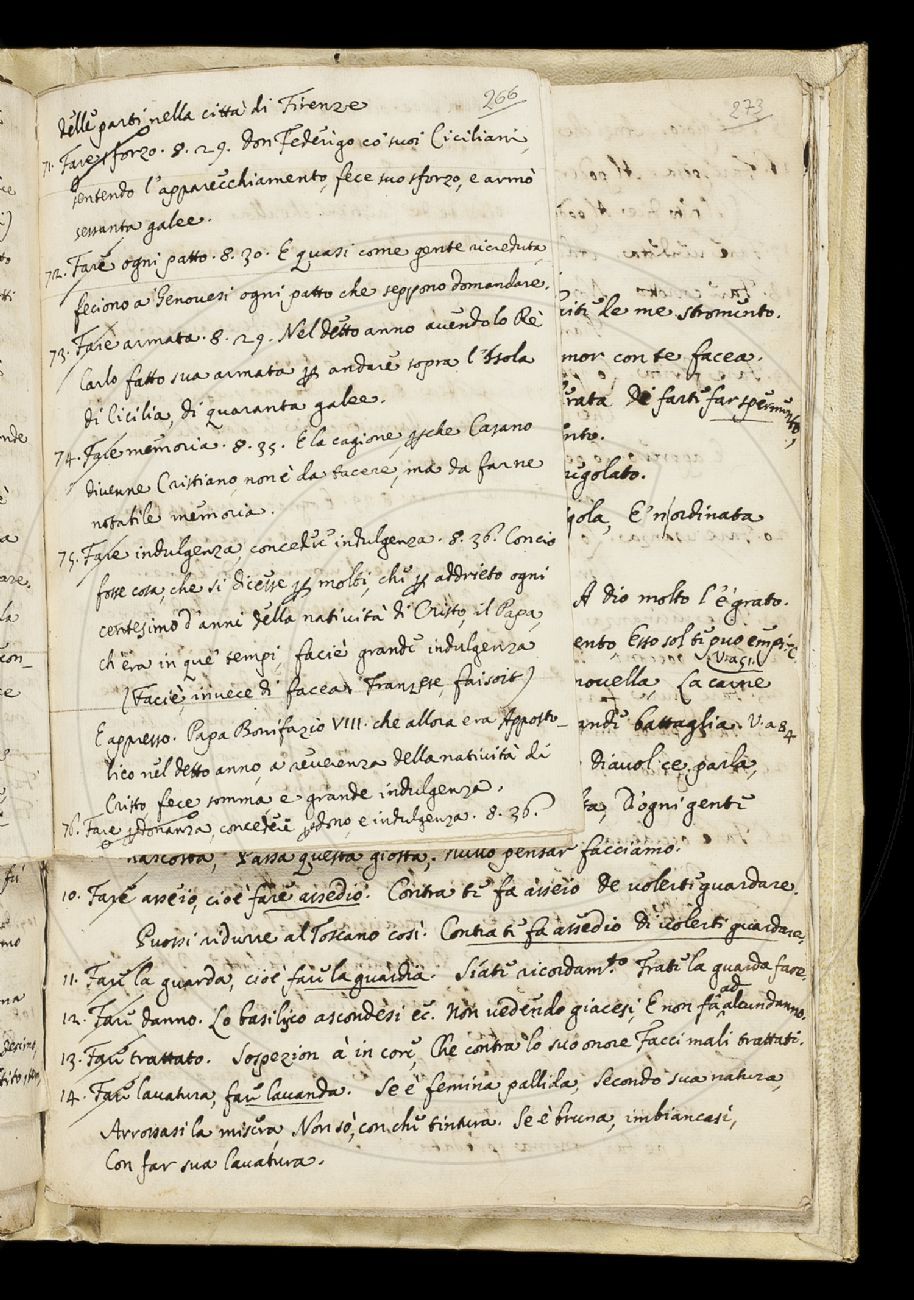 266
delle parti nella città di Firenze
71. Fare sforzo. 8. 29. Don Federigo co suoi Ciciliani,
sentendo l'apparecchiamento, fece suo sforzo, e armò
sessanta galee.
72. Fare ogni patto. 8. 30. E quasi come gente ricreduta,
feciono a Genovesi ogni patto che seppono domandare.
73. Fare armata. 8. 29. Nel detto anno avendo lo Re
Carlo fatto sua armata ꝑ andare sopra l'Isola
di Cicilia, di quaranta galee.
74. Fare memoria. 8. 35. E la cagione, ꝑche Casano
divenne Cristiano, non è da tacere, ma da farne
notabile memoria.
75. Fare indulgenza, concedere indulgenza. 8. 36. Con cio
fosse cosa, che si dicesse ꝑ molti, che ꝑ addrieto ogni
centesimo d'anni della natività di Cristo, il Papa,
ch'era in que' tempi, faciè grande indulgenza
(Faciè, invece di facea: Franzese, faisoit)
E appresso. Papa Bonifazio VIII. che allora era Apposto-
lico nel detto anno, a reverenza della natività di
Cristo fece somma e grande indulgenza.
76. Fare ꝑdonanza, concedere ꝑdono, e indulgenza. 8. 36.
273
le me stromento.
mor con te facea.
di farti far spermento,
rigolato.
gola, E'n ordinata
A dio molto l'è grato.
Esso sol ti puo empire
V. a 51.
novella, La carne
battaglia. V. a 84
Diavol ce parla,
D'ogni gente
nascosta, Passa questa giosta, nuvo pensar facciamo.
10. Fare asseio, cioè fare assedio. Contra te fa asseio de volerti guardare.
Puossi ridurre al Toscano così. Contra te fa assedio di volerti guardare.
11. Fare la guarda, cioè fare la guardia. Siate ricordam.to Frate la guarda fare.
12. Fare danno. Lo basilico ascondesi ec. Non vedendo giacesi, E non fa ad alcun danno.
13. Fare trattato. Sospezion à in core, Che contra lo suo onore Facci mali trattati.
14. Fare lavatura, fare lavanda. Se è femina pallida, Secondo sua natura,
Arrossasi la misera, Non sò, con che tintura. Se è bruna, imbiancasi,
Con far sua lavatura.